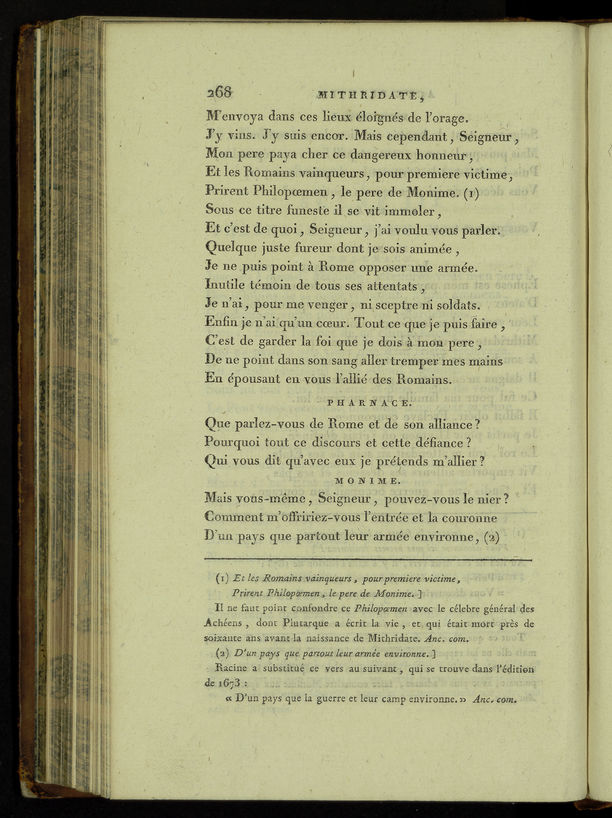 268 MITHRIDATE,
M'envoya dans ces lieux éloignés de l'orage.
J'y vins. J'y suis encor. Mais cependant, Seigneur,
Mon pere paya cher ce dangereux honneur,
Et les Romains vainqueurs, pour premiere victime,
Prirent Philopœmen, le pere de Monime. (1)
Sous ce titre funeste il se vit immoler,
Et c'est de quoi, Seigneur, j'ai voulu vous parler.
Quelque juste fureur dont je sois animée,
Je ne puis point à Rome opposer une armée.
Inutile témoin de tous ses attentats,
Je n'ai, pour me venger, ni sceptre ni soldats.
Enfin je n'ai qu'un cœur. Tout ce que je puis faire,
C'est de garder la foi que je dois à mon pere,
De ne point dans son sang aller tremper mes mains
En épousant en vous l'allié des Romains.
PHARNACE.
Que parlez-vous de Rome et de son alliance?
Pourquoi tout ce discours et cette défiance?
Qui vous dit qu'avec eux je prétends m'allier?
MONIME.
Mais vous-même, Seigneur, pouvez-vous le nier?
Comment m'offririez-vous l'entrée et la couronne
D'un pays que partout leur armée environne, (2)
(1) Et les Romains vainqueurs, pour premiere victime,
Prirent Philopœmen, le pere de Monime. ]
Il ne faut point confondre ce Philopœmen avec le célebre général des
Achéens, dont Plutarque a écrit la vie, et qui était mort près de
soixante ans avant la naissance de Mithridate. Anc. com.
(2) D'un pays que partout leur armée environne. ]
Racine a substitué ce vers au suivant, qui se trouve dans l'édition
de 1673 :
« D'un pays que la guerre et leur camp environne. » Anc. com.